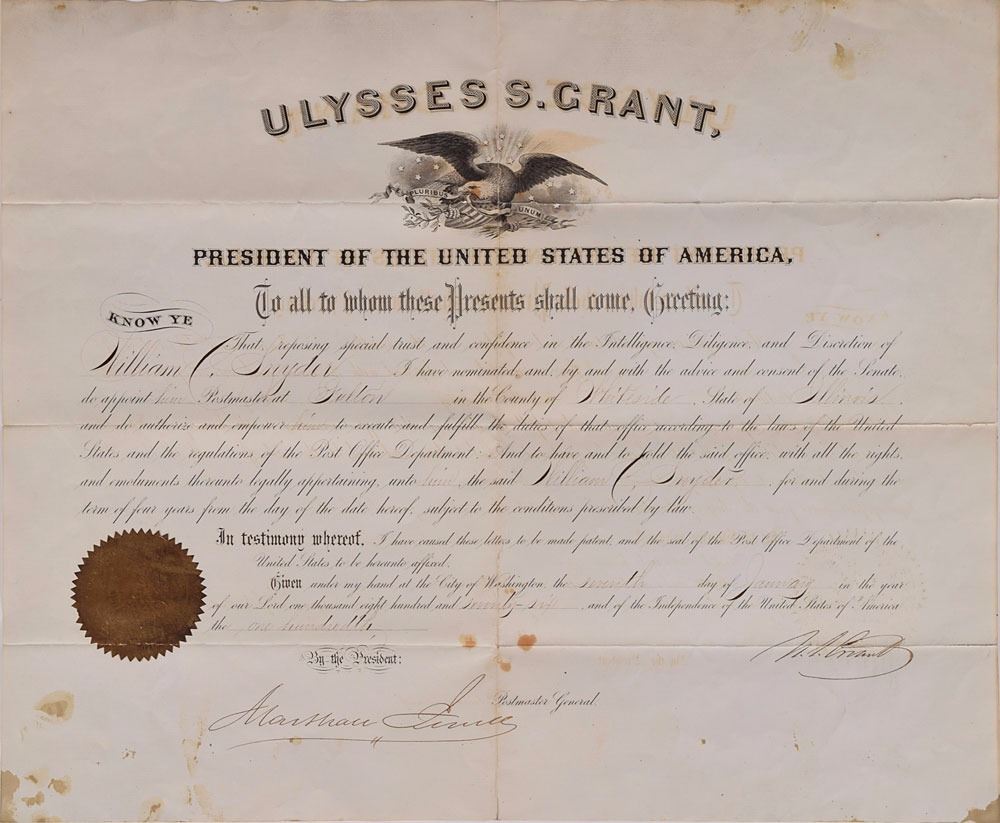 ULYSSES S. GRANT,
PLURIBUS UNUM
PRESIDENT OF THE UNITED STATES OF AMERICA,
To all to whom these Presents shall come, Greeting:
KNOW YE
That, reposing special trust and confidence in the Intelligence, Diligence, and Discretion of
William C. Snyder I have nominated, and, by and with the advice and consent of the Senate,
do appoint him Postmaster at Fulton in the County of Whiteside State of Illinois,
and do authorize and empower him to execute and fulfill the duties of that office according to the laws of the United
States and the regulations of the Post Office Department: And to have and to hold the said office, with all the rights,
and emoluments thereunto legally appertaining, unto him, the said William C. Snyder, for and during the
term of four years from the day of the date hereof, subject to the conditions prescribed by law.
In testimony whereof, I have caused these letters to be made patent, and the seal of the Post Office Department of the
United States to be hereunto affixed.
Given under my hand at the City of Washington, the day of January in the year
of our Lord one thousand eight hundred and seventy-six and of the Independence of the United States of America
the one hundredth
By the President:
U. S. Grant
Postmaster General.
Marshall Jewell